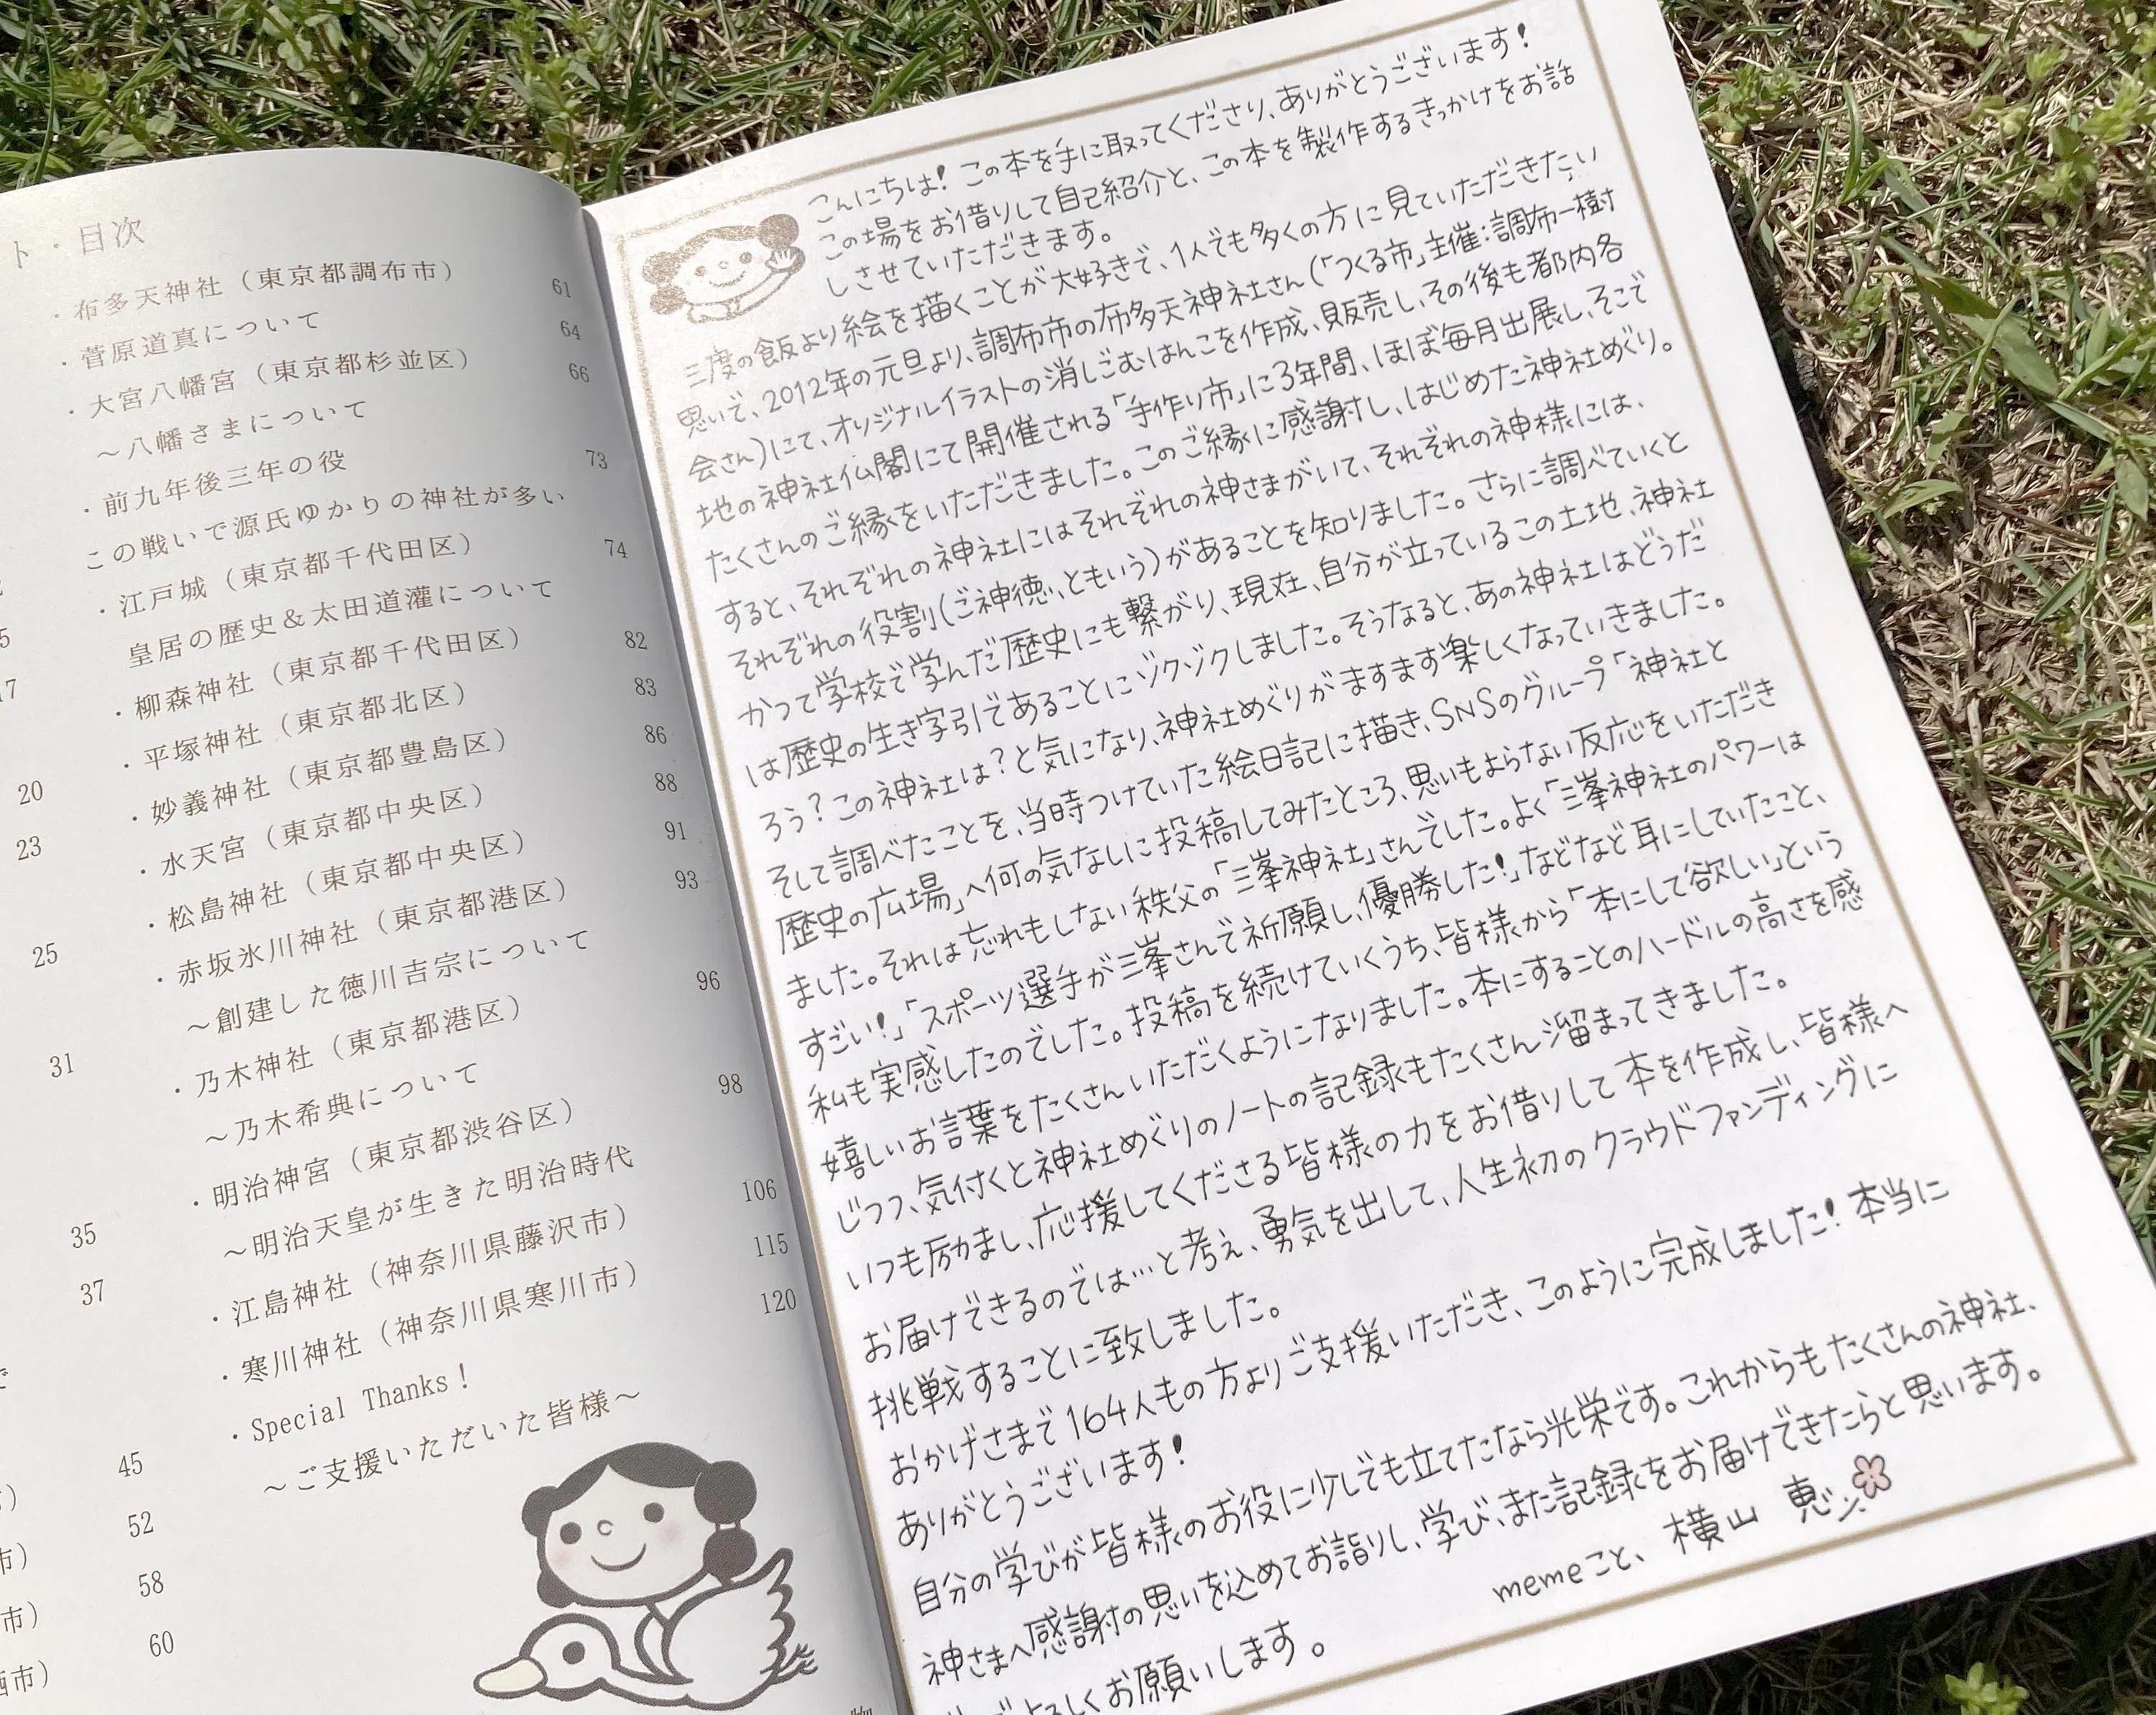 ト・目次
・布多天神社（東京都調布市） 61
・菅原道真について 64
・大宮八幡宮（東京都杉並区） 66
～八幡さまについて
・前九年後三年の役 73
この戦いで源氏ゆかりの神社が多い
・江戸城（東京都千代田区） 74
皇居の歴史＆太田道灌について
・柳森神社（東京都千代田区） 82
・平塚神社（東京都北区） 83
・妙義神社（東京都豊島区） 86
・水天宮（東京都中央区） 88
・松島神社（東京都中央区） 91
・赤坂氷川神社（東京都港区） 93
～創建した徳川吉宗について
・乃木神社（東京都港区） 96
～乃木希典について
・明治神宮（東京都渋谷区） 98
～明治天皇が生きた明治時代
・江島神社（神奈川県藤沢市） 106
・寒川神社（神奈川県寒川市） 115
・Special Thanks！ 120
～ご支援いただいた皆様～
5
17
20
23
25
31
35
37
45
52
市） 58
市） 60
酒市）
こんにちは！この本を手に取ってくださり、ありがとうございます！
この場をお借りして自己紹介と、この本を製作するきっかけをお話
しさせていただきます。
三度の飯より絵を描くことが大好きで、1人でも多くの方に見ていただきたい
思いで、2012年の元旦より、調布市の布多天神社さん(「つくる市」主催：調布一樹
会さん)にて、オリジナルイラストの消しごむはんこを作成、販売し、その後も都内各
地の神社仏閣にて開催される「手作り市」に3年間、ほぼ毎月出展し、そこで
たくさんのご縁をいただきました。このご縁に感謝し、はじめた神社めぐり。
すると、それぞれの神社にはそれぞれの神さまがいて、それぞれの神様には、
それぞれの役割(ご神徳、ともいう)があることを知りました。さらに調べていくと
かつて学校で学んだ歴史にも繋がり、現在、自分が立っているこの土地、神社
は歴史の生き字引であることにゾクゾクしました。そうなると、あの神社はどうだ
ろう？この神社は？と気になり、神社めぐりがますます楽しくなっていきました。
そして調べたことを、当時つけていた絵日記に描き、SNSのグループ「神社と
歴史の広場」へ何の気なしに投稿してみたところ、思いもよらない反応をいただき
ました。それは忘れもしない秩父の「三峯神社」さんでした。よく「三峯神社のパワーは
すごい！」「スポーツ選手が三峯さんで祈願し、優勝した！」などなど耳にしていたこと、
私も実感したのでした。投稿を続けていくうち、皆様から「本にして欲しい」という
嬉しいお言葉をたくさんいただくようになりました。本にすることのハードルの高さを感
じつつ、気付くと神社めぐりのノートの記録もたくさん溜まってきました。
いつも励まし、応援してくださる皆様の力をお借りして本を作成し、皆様へ
お届けできるのでは…と考え、勇気を出して、人生初のクラウドファンディングに
挑戦することに致しました。
おかげさまで164人もの方よりご支援いただき、このように完成しました！本当に
ありがとうございます！
自分の学びが皆様のお役に少しでも立てたなら光栄です。これからもたくさんの神社、
神さまへ感謝の思いを込めてお詣りし、学び、また記録をお届けできたらと思います。
よろしくお願いします。
memeこと、横山 恵